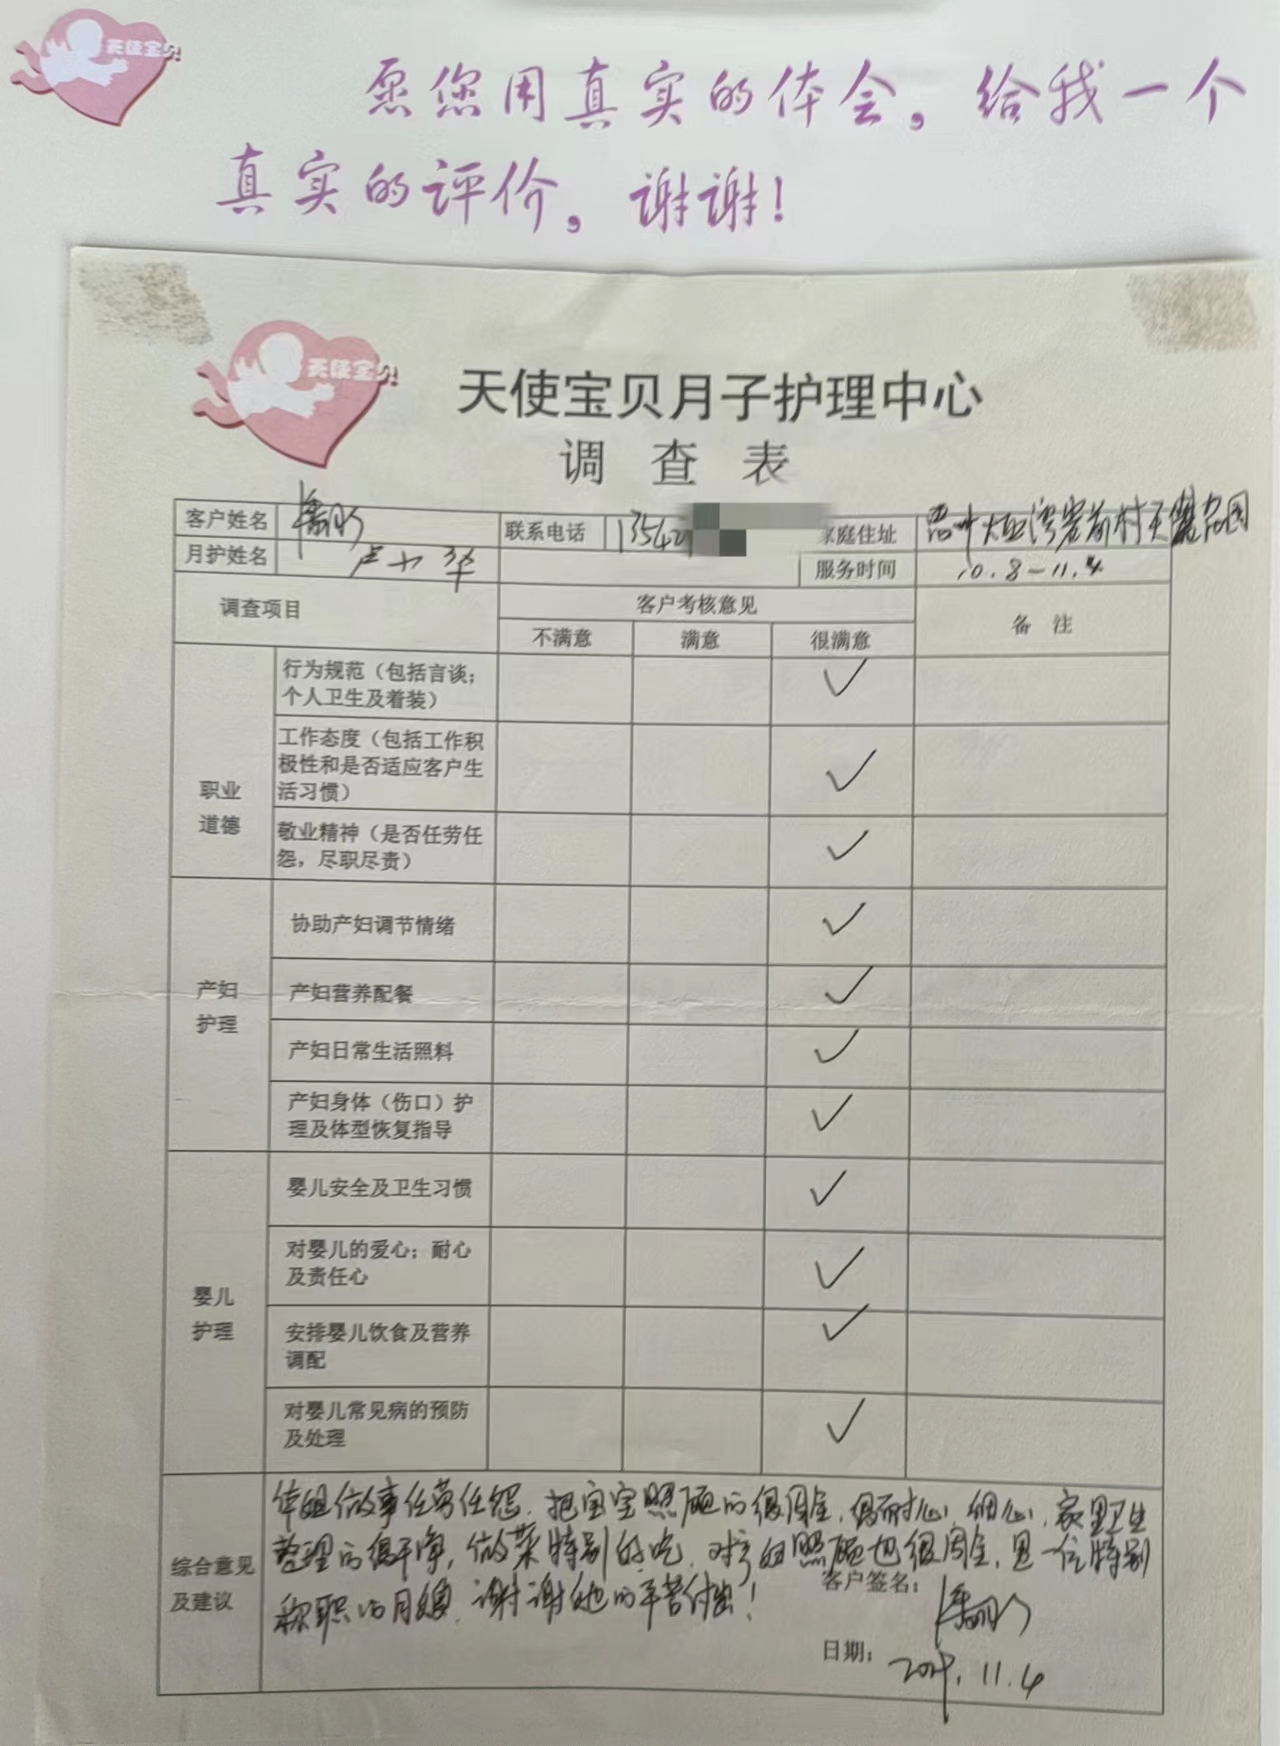 天使宝贝
愿您用真实的体会，给我一个
真实的评价，谢谢！
天使宝贝
天使宝贝月子护理中心
调 查 表
客户姓名 联系电话 13542 家庭住址
月护姓名 卢小华 服务时间 10.8-11.4
调查项目 客户考核意见 备 注
不满意 满意 很满意
职业
道德
行为规范（包括言谈；
个人卫生及着装）
工作态度（包括工作积
极性和是否适应客户生
活习惯）
敬业精神（是否任劳任
怨，尽职尽责）
产妇
护理
协助产妇调节情绪
产妇营养配餐
产妇日常生活照料
产妇身体（伤口）护
理及体型恢复指导
婴儿
护理
婴儿安全及卫生习惯
对婴儿的爱心；耐心
及责任心
安排婴儿饮食及营养
调配
对婴儿常见病的预防
及处理
综合意见
及建议
姐做事任劳任怨，把宝宝照顾的很周全，很耐心，细心，家里卫生
整理的很干净，做菜特别好吃，对 的照顾也很周全，是一位特别
称职的月嫂，谢谢她的辛苦付出！
客户签名：
日期： 11.4